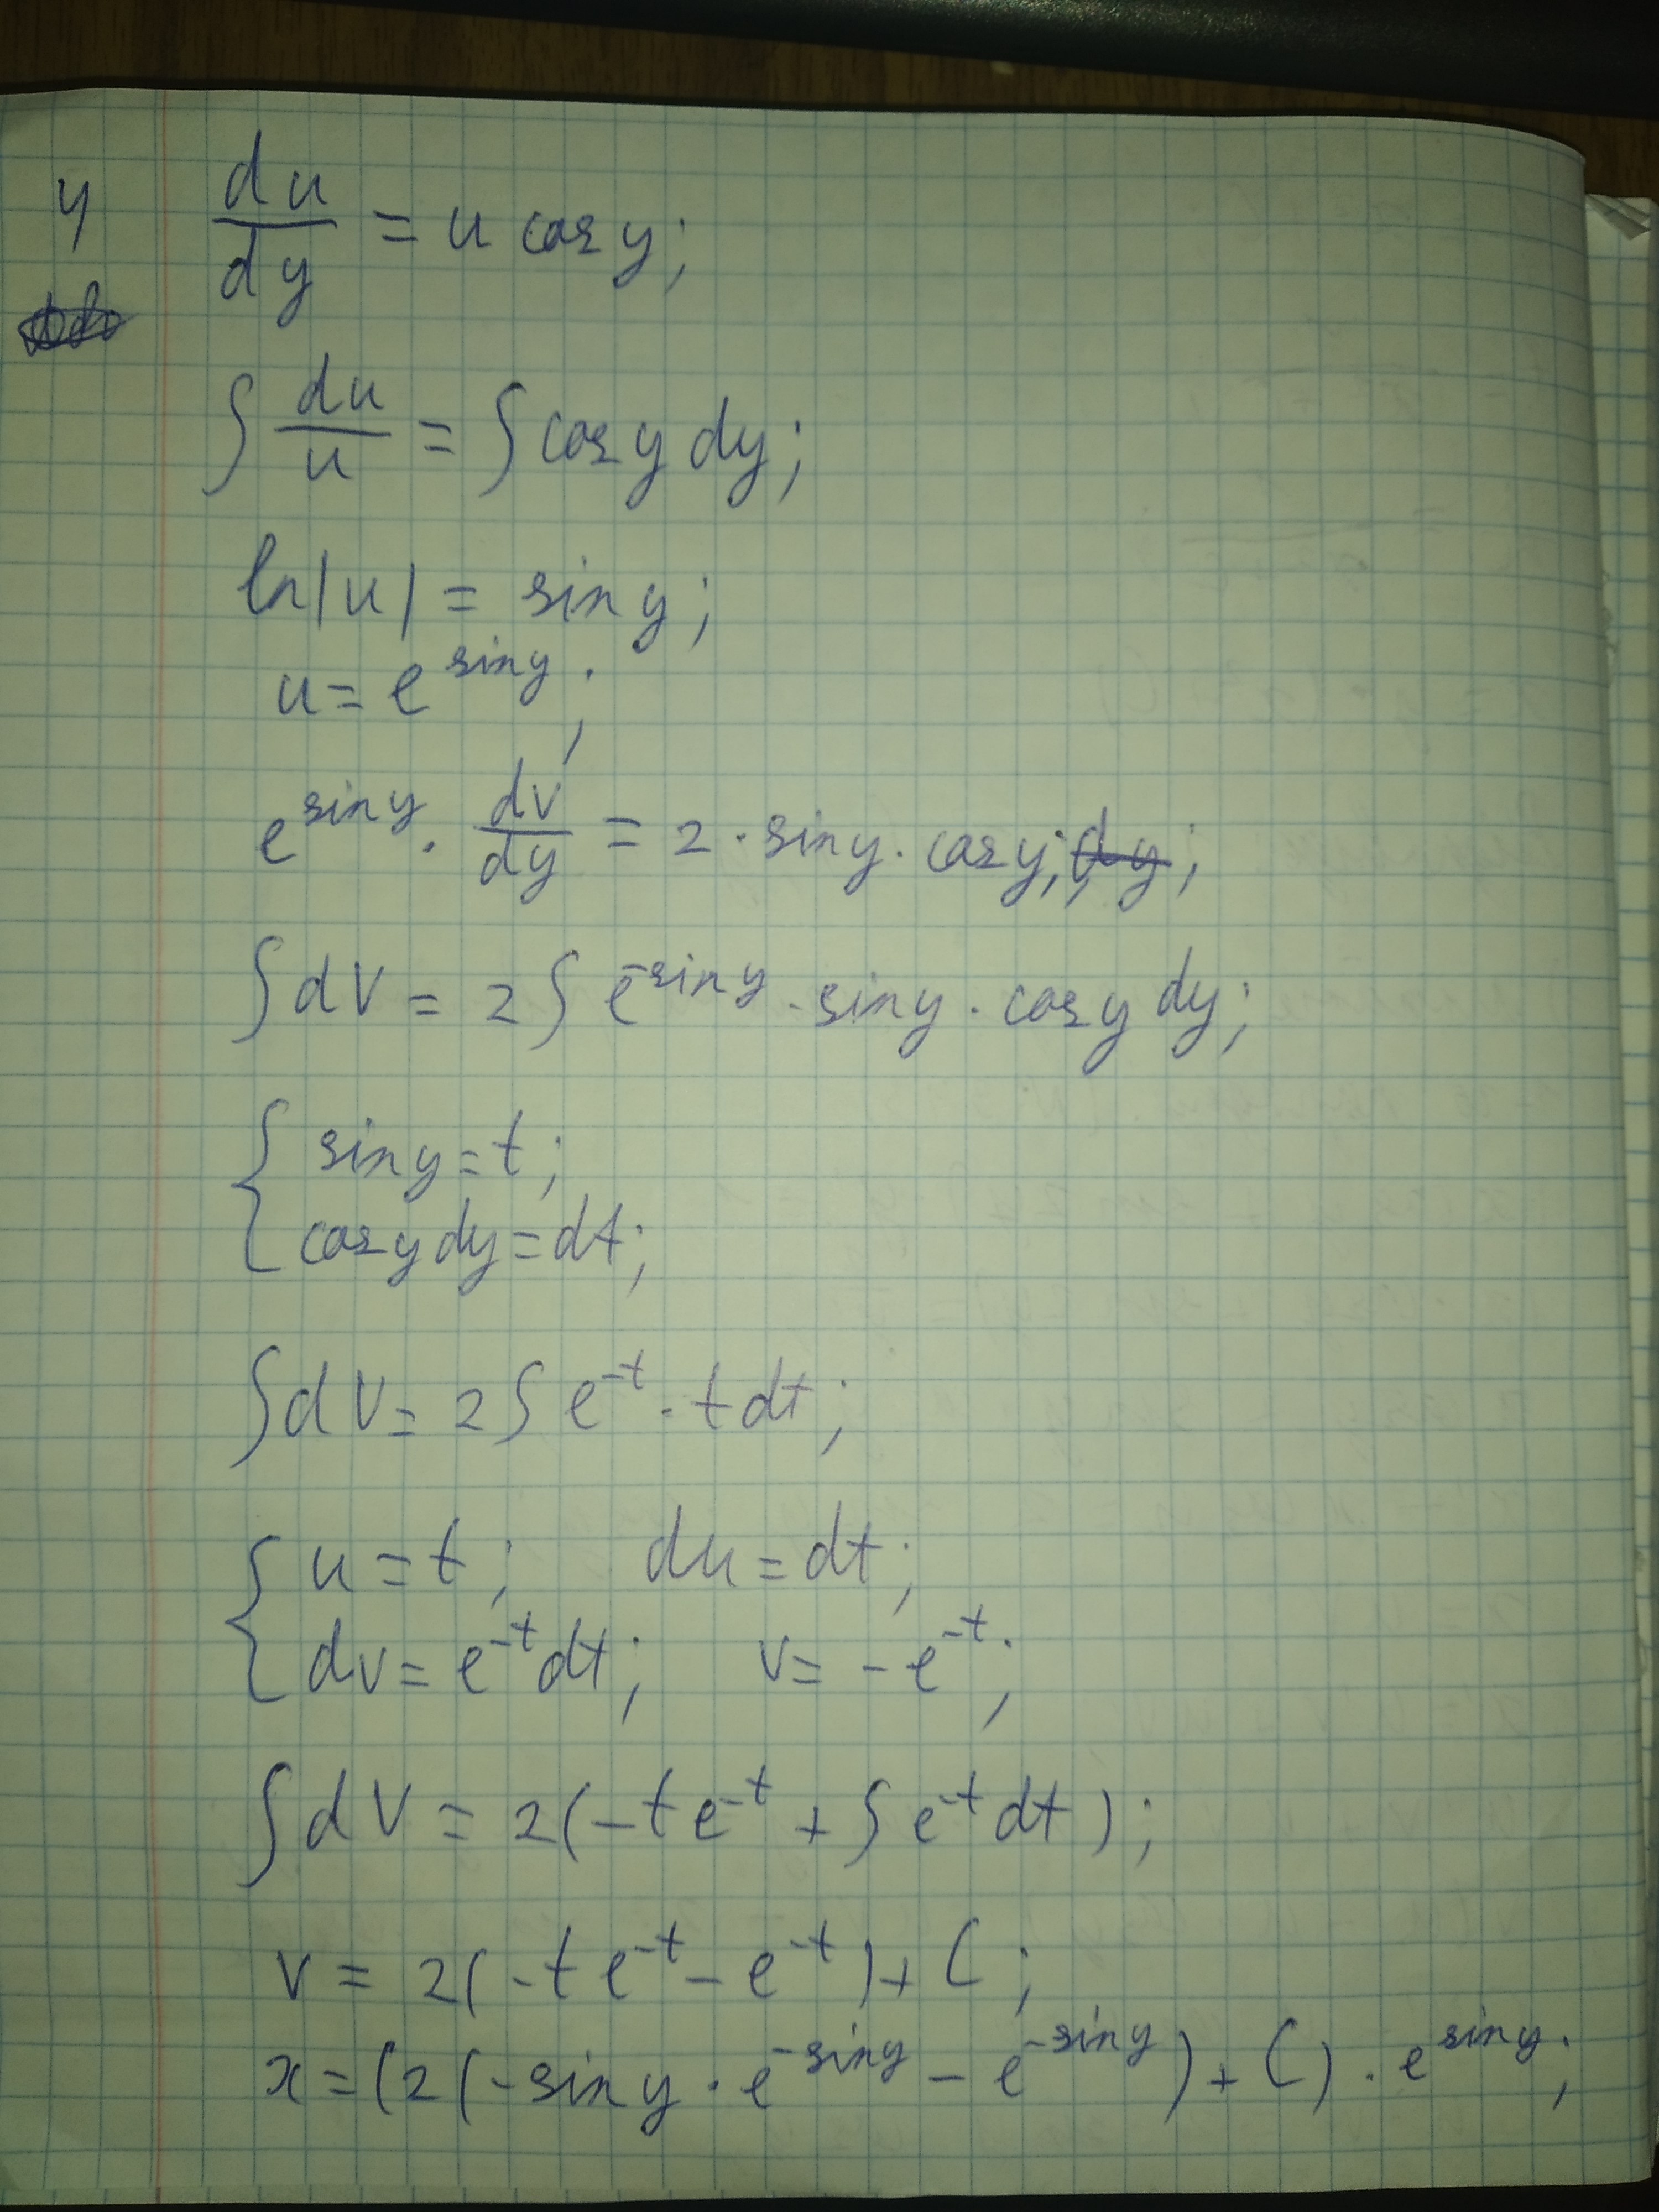 y du/dy = u cos y;
∫ du/u = ∫ cos y dy;
ln|u| = sin y;
u = e^{sin y};
e^{sin y} · dv/dy = 2 · sin y · cos y;
∫ dv = 2 ∫ e^{-sin y} · sin y · cos y dy;
{ sin y = t;
cos y dy = dt;
∫ dv = 2 ∫ e^{-t} · t dt;
{ u = t; du = dt;
dv = e^{-t} dt; v = -e^{-t};
∫ dv = 2(-t e^{-t} + ∫ e^{-t} dt);
v = 2(-t e^{-t} - e^{-t}) + C;
x = (2(-sin y · e^{-sin y} - e^{-sin y}) + C) · e^{sin y};